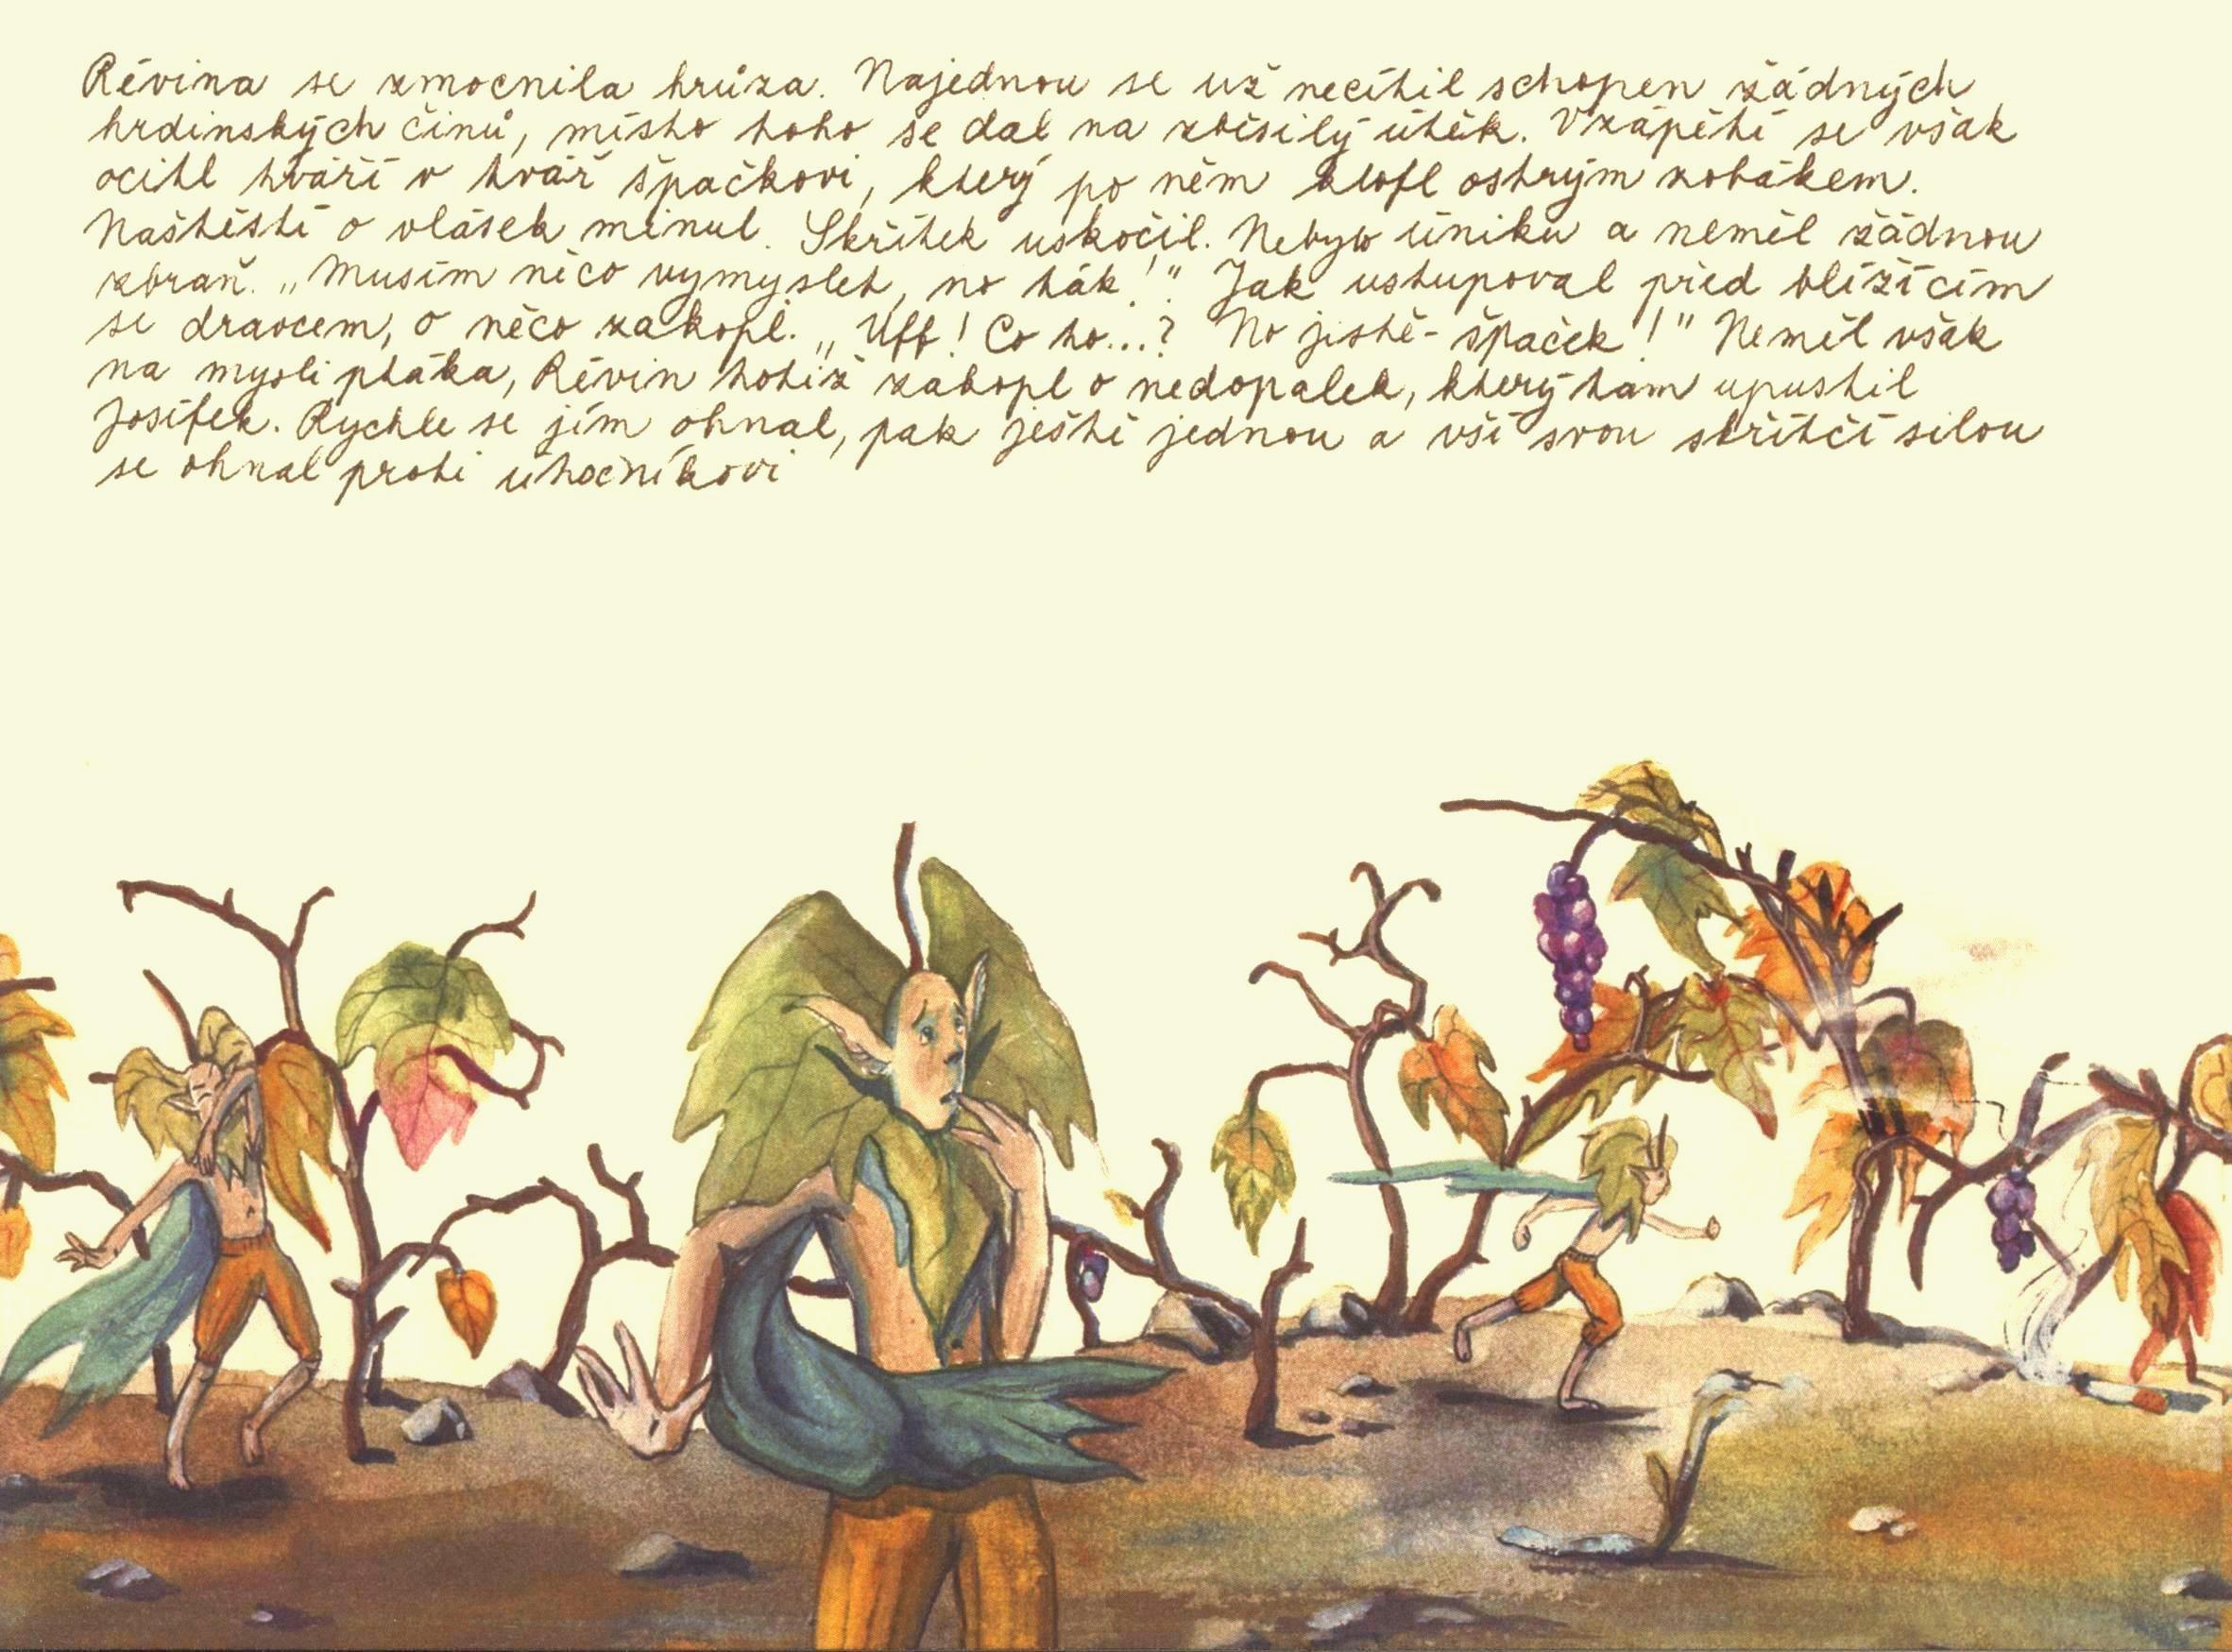 Révina se zmocnila hrůza. Najednou se už necítil schopen žádných
hrdinských činů, místo toho se dal na zběsilý útěk. Vzápětí se však
ocitl tváří v tvář špačkovi, který po něm klofl ostrým zobákem.
Naštěstí o vlásek minul. Skřítek uskočil. Nebylo úniku a neměl žádnou
zbraň. „Musím něco vymyslet, no ták!" Jak ustupoval před blížícím
se dravcem, o něco zakopl. „Uff! Co to...? No jistě - špaček!" Neměl však
na mysli ptáka, Révin totiž zakopl o nedopalek, který tam upustil
Josífek. Rychle se jím ohnal, pak ještě jednou a vší svou skřítčí silou
se ohnal proti útočníkovi